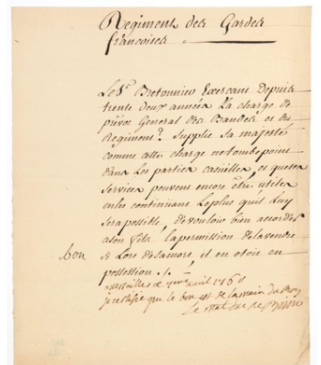 Regiment des Gardes
francoises
Le Sr. Bretonnier Exercant Depuis
trente deux années La charge de
General des Bandes et du
Regiment, Supplie sa majesté
comme cette charge ne tombe point
dans Les parties casuelles, et que ses
Services peuvent encore être utiles
en les continuant Le plus qu'il Luy
sera possible, de vouloir bien accorder
a son fils la permission de la vendre
bon
si Lors de sa mort, il en etoit en
possession ./.
versailles ce avril 1760
je certifie que le bon est de la main du Roy
Le mal duc de